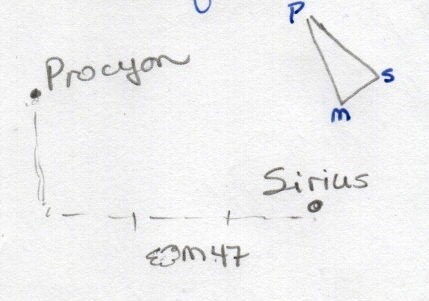 P
Procyon
S
M
Sirius
M47